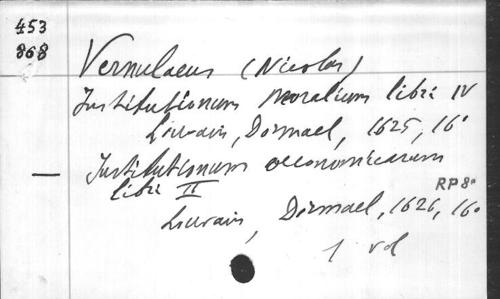 453
868
Vernulaeus (Nicolas)
Institutionum moralium libri IV
Louvain, Dormael, 1625, 16°
— Institutionum oeconomicarum
libri II
RP 8°
Louvain, Dormael, 1626, 16°
1 vol